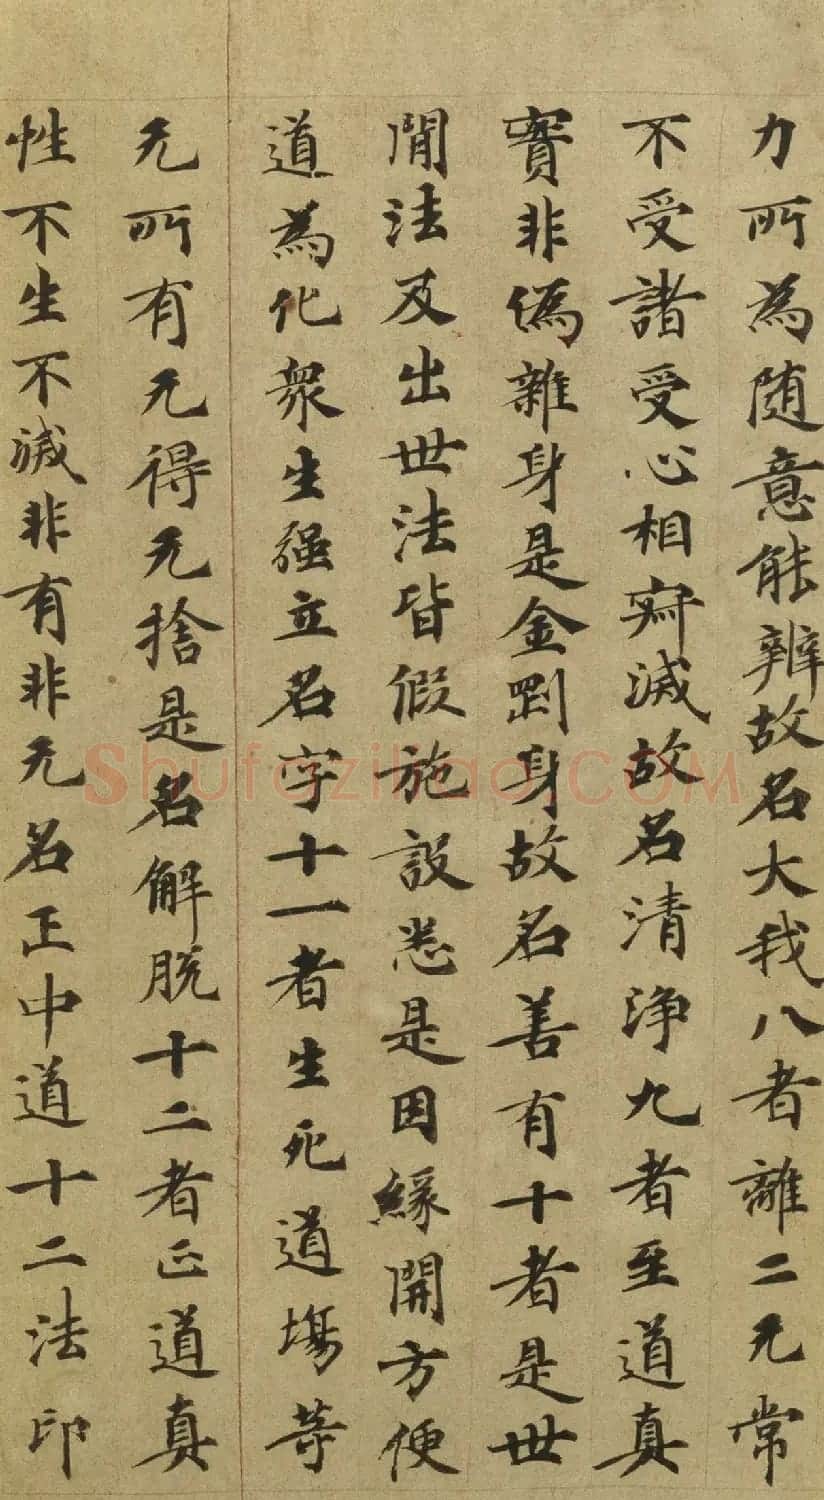 力所為随意能辨故名大我八者離二无常
不受諸受心相寂滅故名清浄九者至道真
實非偽雜身是金剛身故名善有十者是世
間法及出世法皆假施設悉是因緣開方便
道為化衆生強立名字十一者生死道場等
无所有无得无捨是名解脱十二者正道真
性不生不滅非有非无名正中道十二法印
Shufazibao.COM